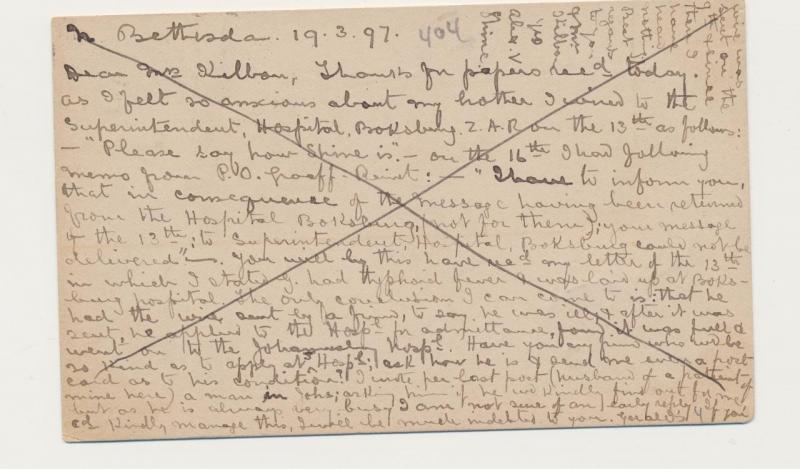 N. Bethesda. 19.3.97. 404
Dear Mrs Kilbon, Thanks for papers rec'd today.
as I felt so anxious about my brother I wired to the
Superintendent, Hospital, Boksburg. Z.A.R on the 13th as follows:
— "Please say how Spine is". — on the 16th I had following
memo from P.O. Graaff-Reinet: — "I have to inform you,
that in consequence of the message having been returned
from the Hospital Boksburg, (not for them); your message
of the 13th; to Superintendent, Hospital, Boksburg could not be
delivered" —. You will by this have rec'd my letter of the 13th
in which I stated had typhoid fever & was laid up at Boks-
burg hospital. The only conclusion I can come to is: that he
had the wire sent by a friend, to say he was ill & after it was
sent, he applied to the Hospl for admittance, it was full &
went on to the Johannesburg Hospl. Have you any who wd be
so kind as to apply at Hospl; ask how he is & send me even a post
card as to his condition? I wrote per last post (husband of a patient of
mine here) a man in Johs: asking him if he wd kindly find out for me
but as he is always very busy I am not sure of an early reply. If you
cd kindly manage this, I will be much indebted to you.
wire was
sent on the